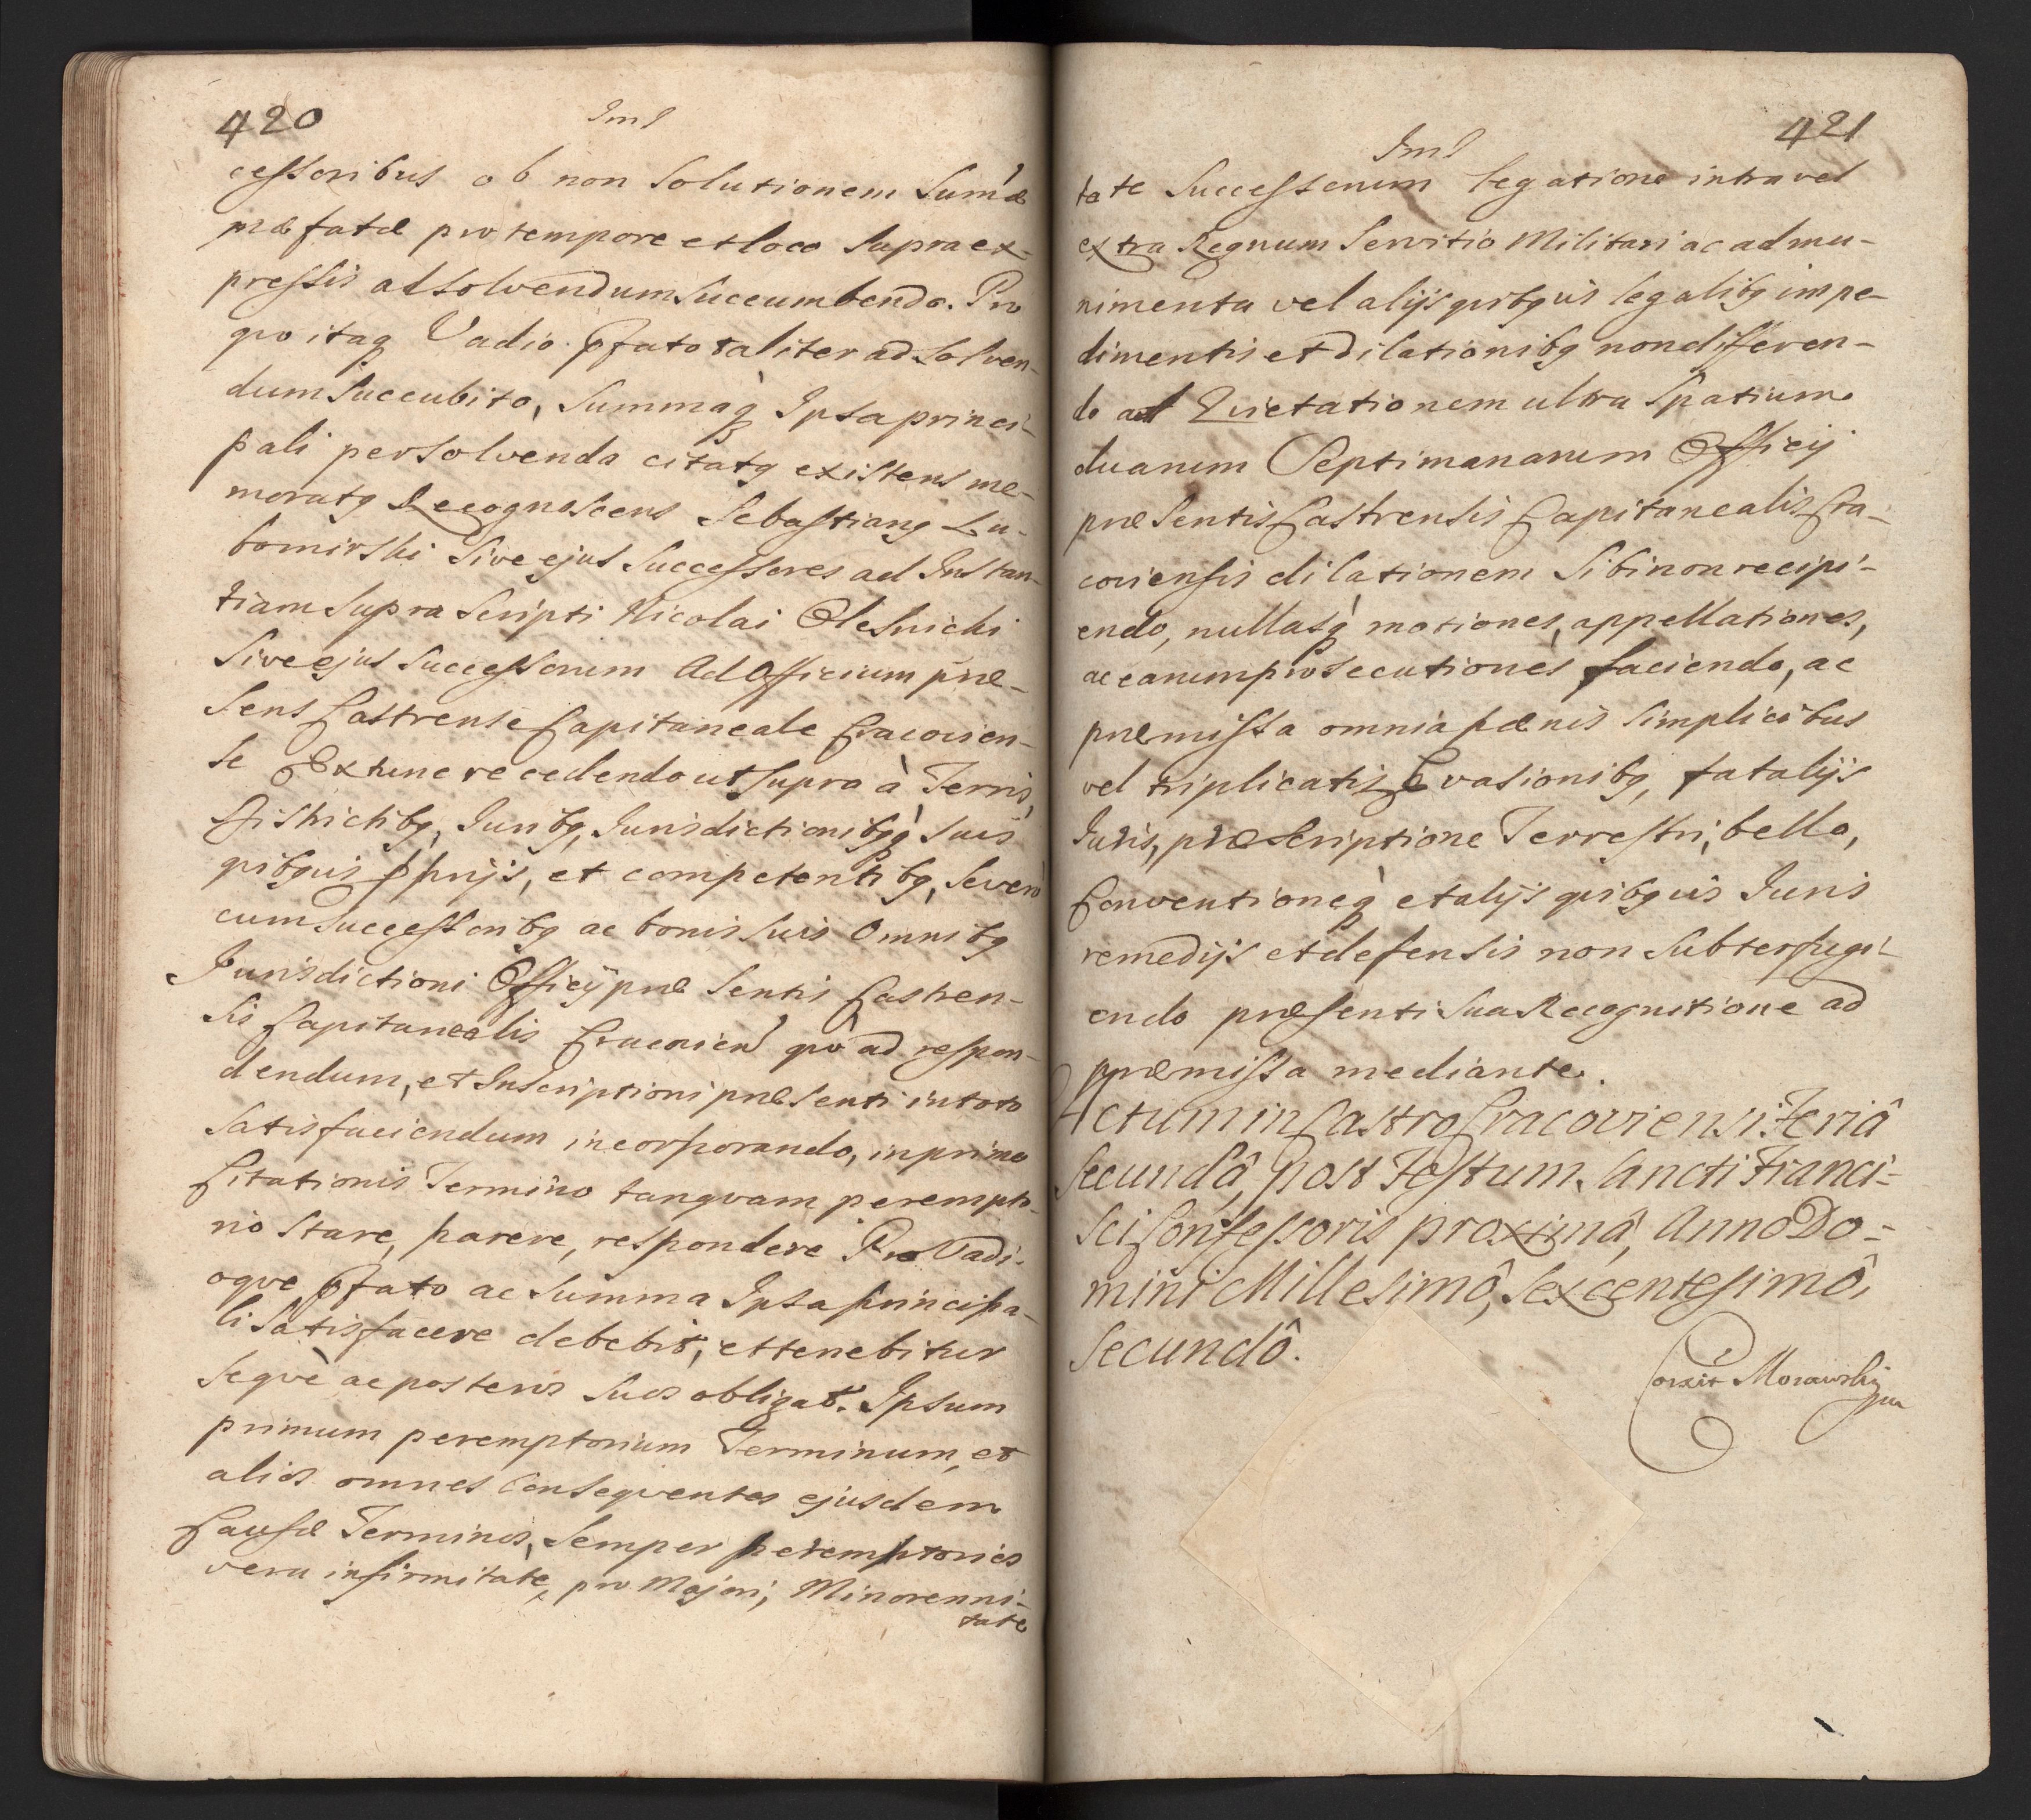 420
cessoribus ob non solutionem Sum̃æ
præfatæ pro tempore et loco supra ex-
pressis ad solvendum succumbendo. Pro
qvo itaq Vadio pfato taliter ad solven-
dum succubito, Summaq̀ Ipsa princi-
pali persolvenda citatq existens me-
moratq Recognoscens Sebastianq Lu-
bomirski sive ejus Successores ad Instan-
tiam supra scripti Nicolai Olesnicki
Sive ejus Successorum Ad Officium præ-
sens Castrense Capitaneale Cracovien-
se Extunc recedendo ut supra à Terris,
Districtibq, Juribq, Jurisdictionibqq̀ suis
qvibqvis pprijs, et competentibq, Severò
cum successoribq ac bonis suis omnibq
Jurisdictioni Officij præsentis Castren-
sis Capitanealis Cracovien̄ qvò ad respon-
dendum, et Inscriptioni præsenti in toto
satisfaciendum incorporando, in primo
Citationis Termino tanqvam perempto-
rio stare, parere, respondere Pro Vadi-
oqve pfato ac Summa Ipsa principa-
li satisfacere debebit, et tenebitur
seqvè ac posteros suos obligat. Ipsum
primum peremptorium Terminum, et
alios omnes conseqventes ejusdem
Causæ Terminos, semper peremptorios
vera infirmitate, pro Majori, Minorenni-
tate
421
tate Successorum legatione intra vel
extra Regnum Servitio Militari ac ad mu-
nimenta vel alijs qvibqvis legalibq impe-
dimentis et dilationibq non differen-
do ad Qvietationem ultra Spatium
duarum Septimanarum Officij
præsentis Castrensis Capitanealis Cra-
coviensis dilationem sibi non recipi-
endo, nullasq̀ motiones, appellationes,
ac earum prosecutiones faciendo, ac
præmissa omnia pœnis simplicibus
vel triplicatis Evasionibq, fatalijs
Juris, præscriptione Terrestri, bello,
Conventioneq̀ et alijs qvibqvis Juris
remedijs et defensis non subterfugi-
endo præsenti sua Recognitione ad
præmissa mediante.
Actum in Castro Cracoviensi Feriâ
secundâ post Festum Sancti Franci-
sci Confessoris proximâ, Anno Do-
mini Millesimô, sexcentesimô,
secundô.
Corexit Morawski